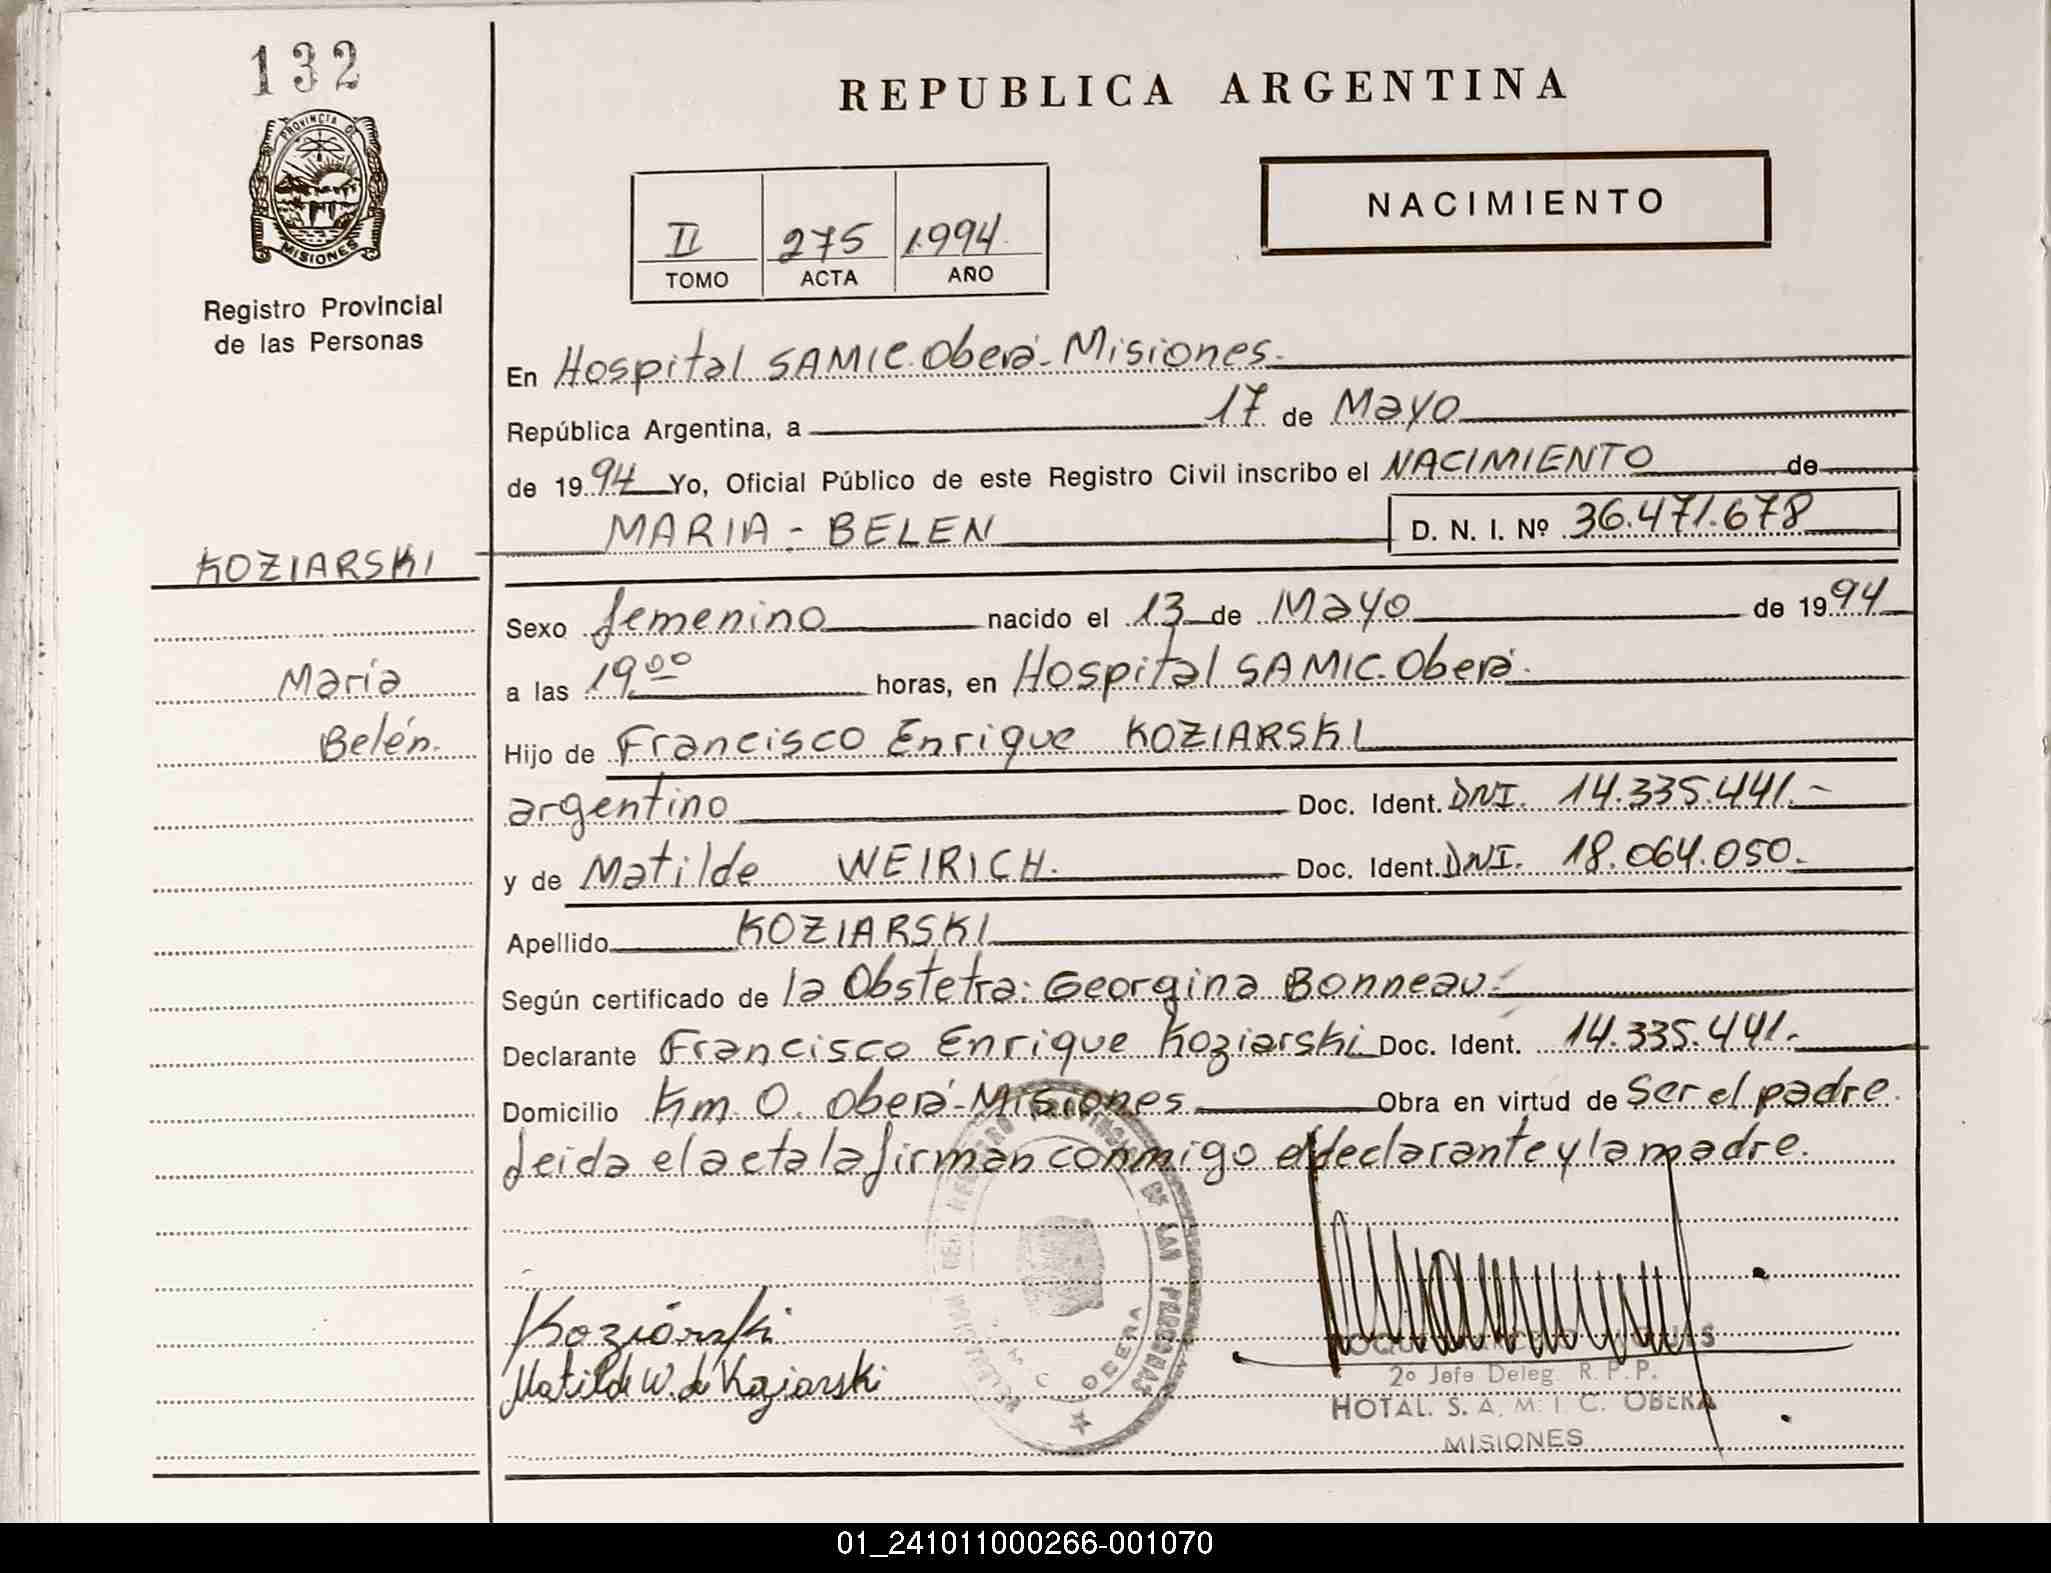 132
REPUBLICA ARGENTINA
PROVINCIA DE
MISIONES
NACIMIENTO
II 275 1994
TOMO ACTA AÑO
Registro Provincial
de las Personas
En Hospital SAMIC. Oberá - Misiones.
República Argentina, a 17 de Mayo
de 1994 Yo, Oficial Público de este Registro Civil inscribo el NACIMIENTO de
MARIA - BELEN D. N. I. Nº 36.471.678
KOZIARSKI
María
Belén.
Sexo femenino nacido el 13 de Mayo de 1994
a las 19,00 horas, en Hospital SAMIC. Oberá.
Hijo de Francisco Enrique KOZIARSKI
argentino Doc. Ident. DNI. 14.335.441.-
y de Matilde WEIRICH. Doc. Ident. DNI. 18.064.050.
Apellido KOZIARSKI
Según certificado de la Obstetra: Georgina Bonneau.
Declarante Francisco Enrique Koziarski Doc. Ident. 14.335.441.-
Domicilio Km. 0. Oberá - Misiones Obra en virtud de Ser el padre.
Leida el acta la firman conmigo el declarante y la madre.
DE LAS PERSONAS
OBERA
Koziarski
Matilde W. de Koziarski
2º Jefe Deleg. R. P. P.
HOTAL. S. A. M. I. C. OBERA
MISIONES
01_241011000266-001070